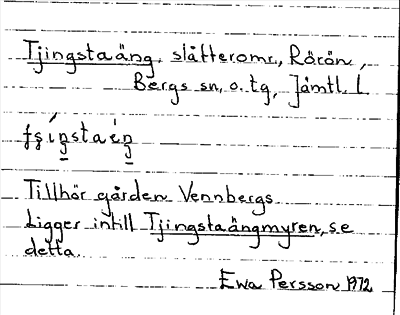 Tjingstaäng, slåtteromr., Rörön,
Bergs sn. o. tg, Jämtl. L
Tillhör gården Vennbergs
Ligger intill Tjingstaängmyren, se
detta.
Ewa Persson 1972